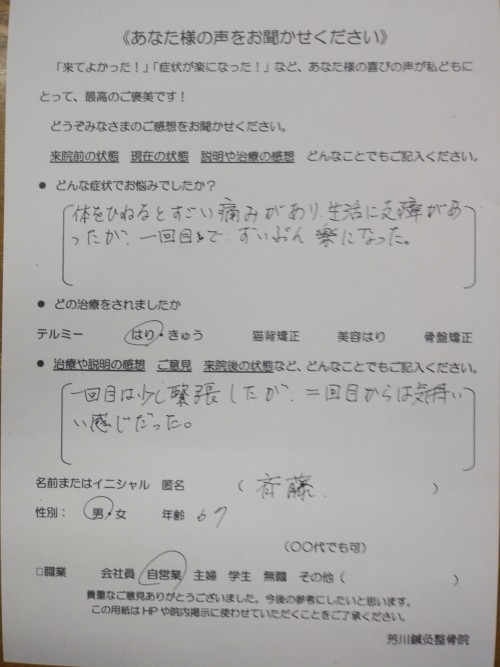 《あなた様の声をお聞かせください》
「来てよかった！」「症状が楽になった！」など、あなた様の喜びの声が私どもに
とって、最高のご褒美です！
どうぞみなさまのご感想をお聞かせください。
来院前の状態　現在の状態　説明や治療の感想　どんなことでもご記入ください。
● どんな症状でお悩みでしたか？
体をひねるとすごい痛みがあり、生活に支障があ
ったが、一回目で、ずいぶん楽になった。
● どの治療をされましたか
テルミー　はり・きゅう　猫背矯正　美容はり　骨盤矯正
● 治療や説明の感想　ご意見　来院後の状態など、どんなことでもご記入ください。
一回目は少し緊張したが、二回目からは気持い
い感じだった。
名前またはイニシャル　匿名　（　斉藤　）
性別：　男・女　年齢　67
（〇〇代でも可）
□職業　会社員　自営業　主婦　学生　無職　その他（　）
貴重なご意見ありがとうございました。今後の参考にしたいと思います。
この用紙はHPや院内掲示に使わせていただくことをご了承ください。
芳川鍼灸整骨院